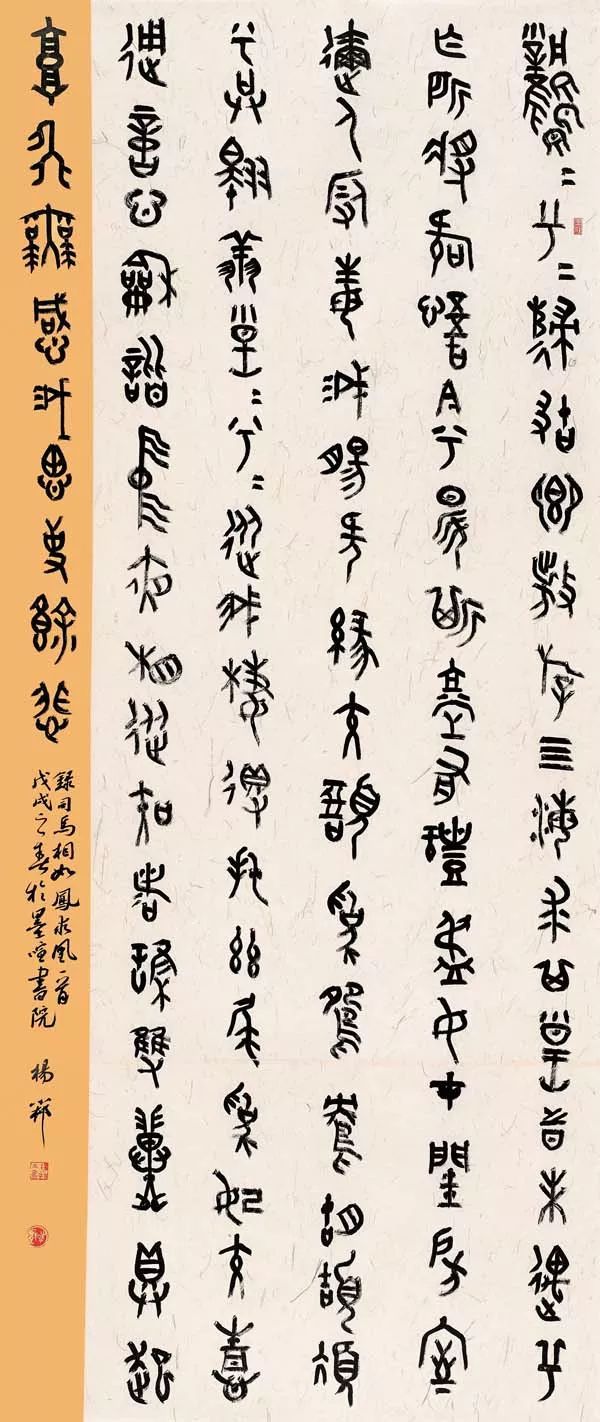 鳳=兮=歸故鄉敖游亖海求其皇時未遇兮
亡所將何悟今兮昇斯堂有豔淑女在閨房室
邇人遐毒我腸何緣交頸為鴛鴦胡頡頏
兮共翱翔皇=兮=從我棲得托茲尾為妃交
通意心龢諧中夜相從知者誰雙翼俱起
高飛無感我思使餘悲
錄司馬相如鳳求凰一首
戊戌之春於墨喧書院 楊